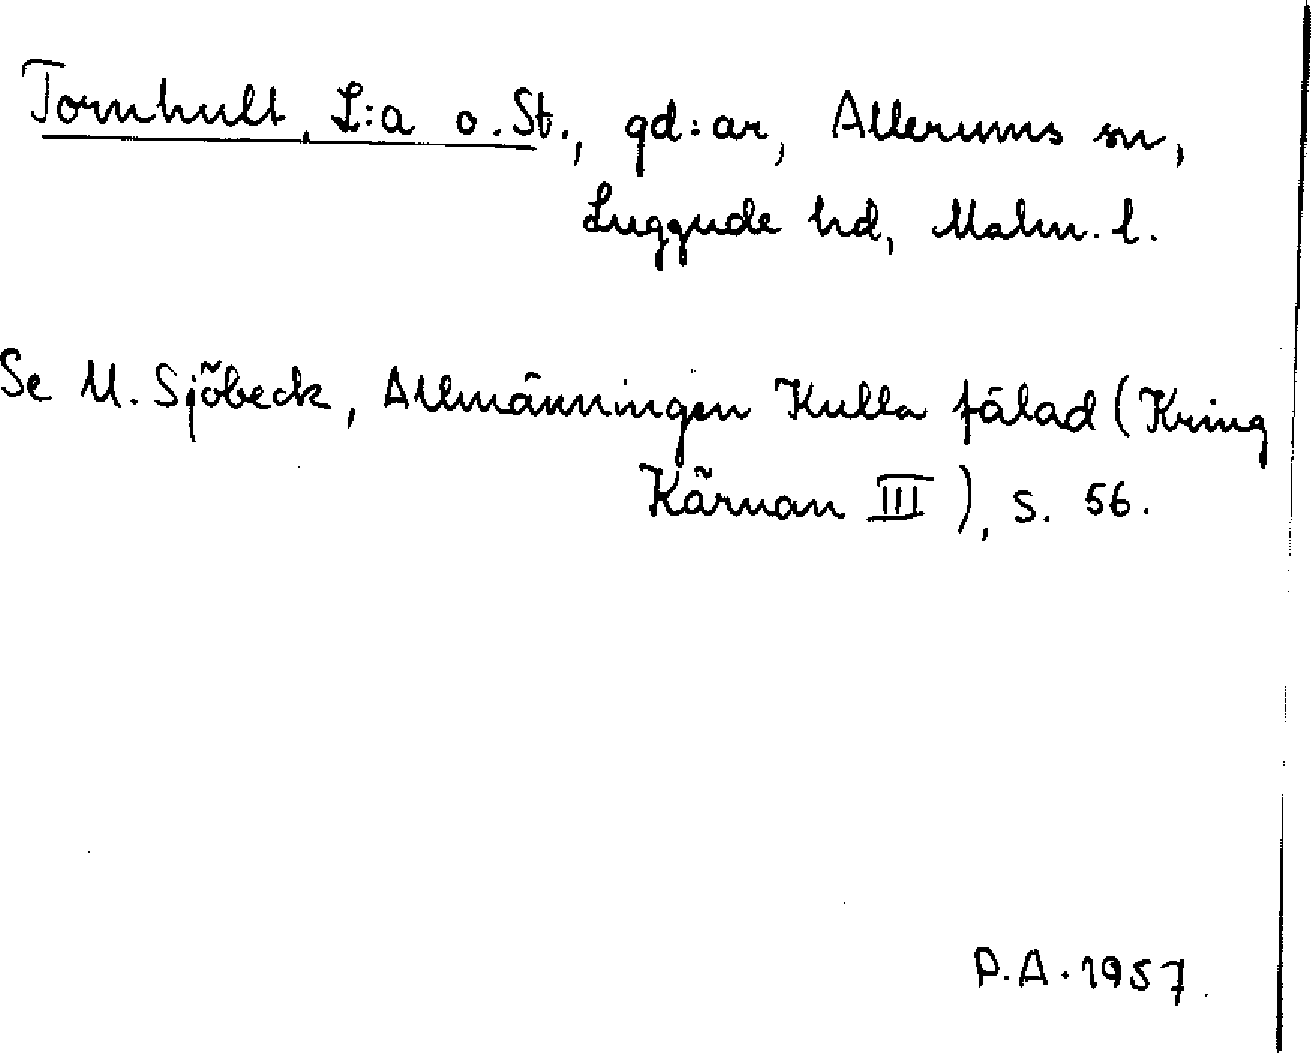 Tornhult, L:a o. St., gd:ar, Allerums sn,
Luggude hd, Malm. l.
Se M. Sjöbeck, Allmänningen Kulla fälad (Kring
Kärnan III), s. 56.
P.A. 1957.